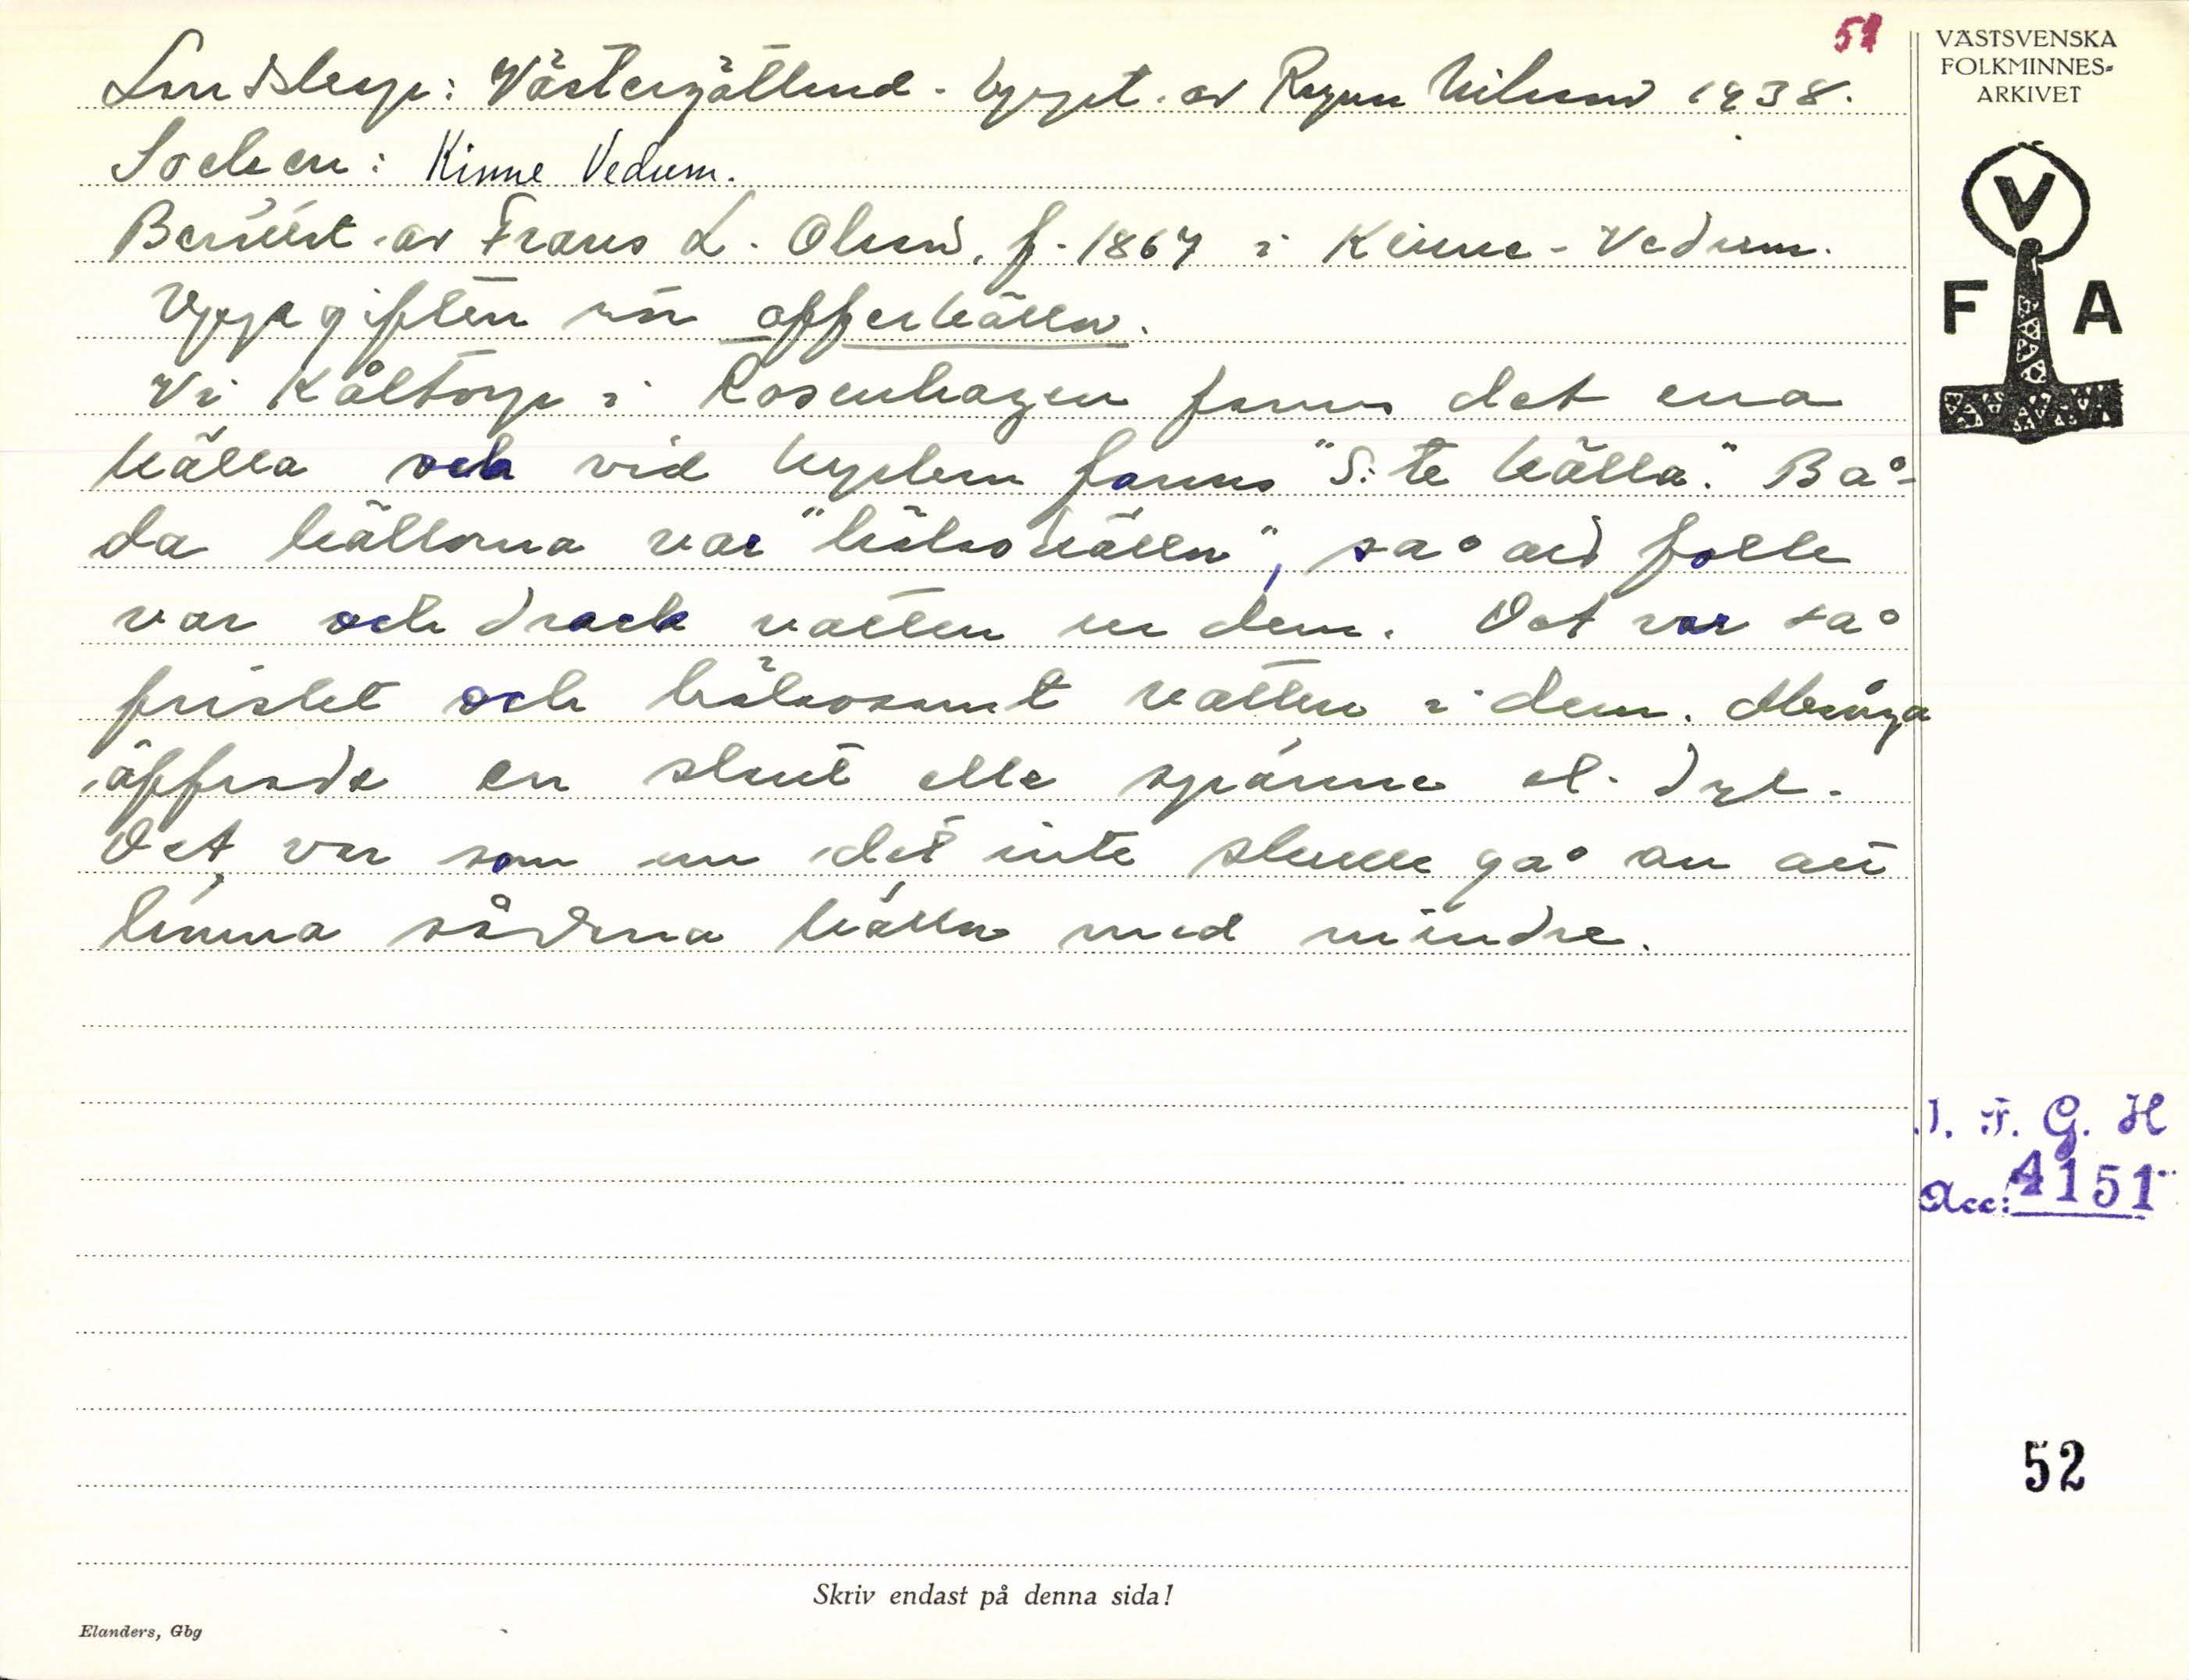 51
VÄSTSVENSKA
FOLKMINNES-
ARKIVET
V
F A
Landskap: Västergötland. Uppt. av Ragnar Nilsson 1938.
Socken: Kinne Vedum.
Berätt. av Frans L. Olsson, f. 1867 i Kinne-Vedum.
Uppgiften rör offerkällor.
Vi Kåltorp i Rosenhagen fanns det ena
källa och vid kyrkan fanns "S:te källa". Bå-
da källorna var "hälsokällor", så att folk
var och drack vatten ur dem. Det var så
friskt och hälsosamt vatten i dem. Många
offrade en slant eller spänne el. dyl.
Det var som om det inte skulle gå an att
lämna sådana källor med mindre.
I. F. G. H
Acc: 4151
52
Skriv endast på denna sida!
Elanders, Gbg